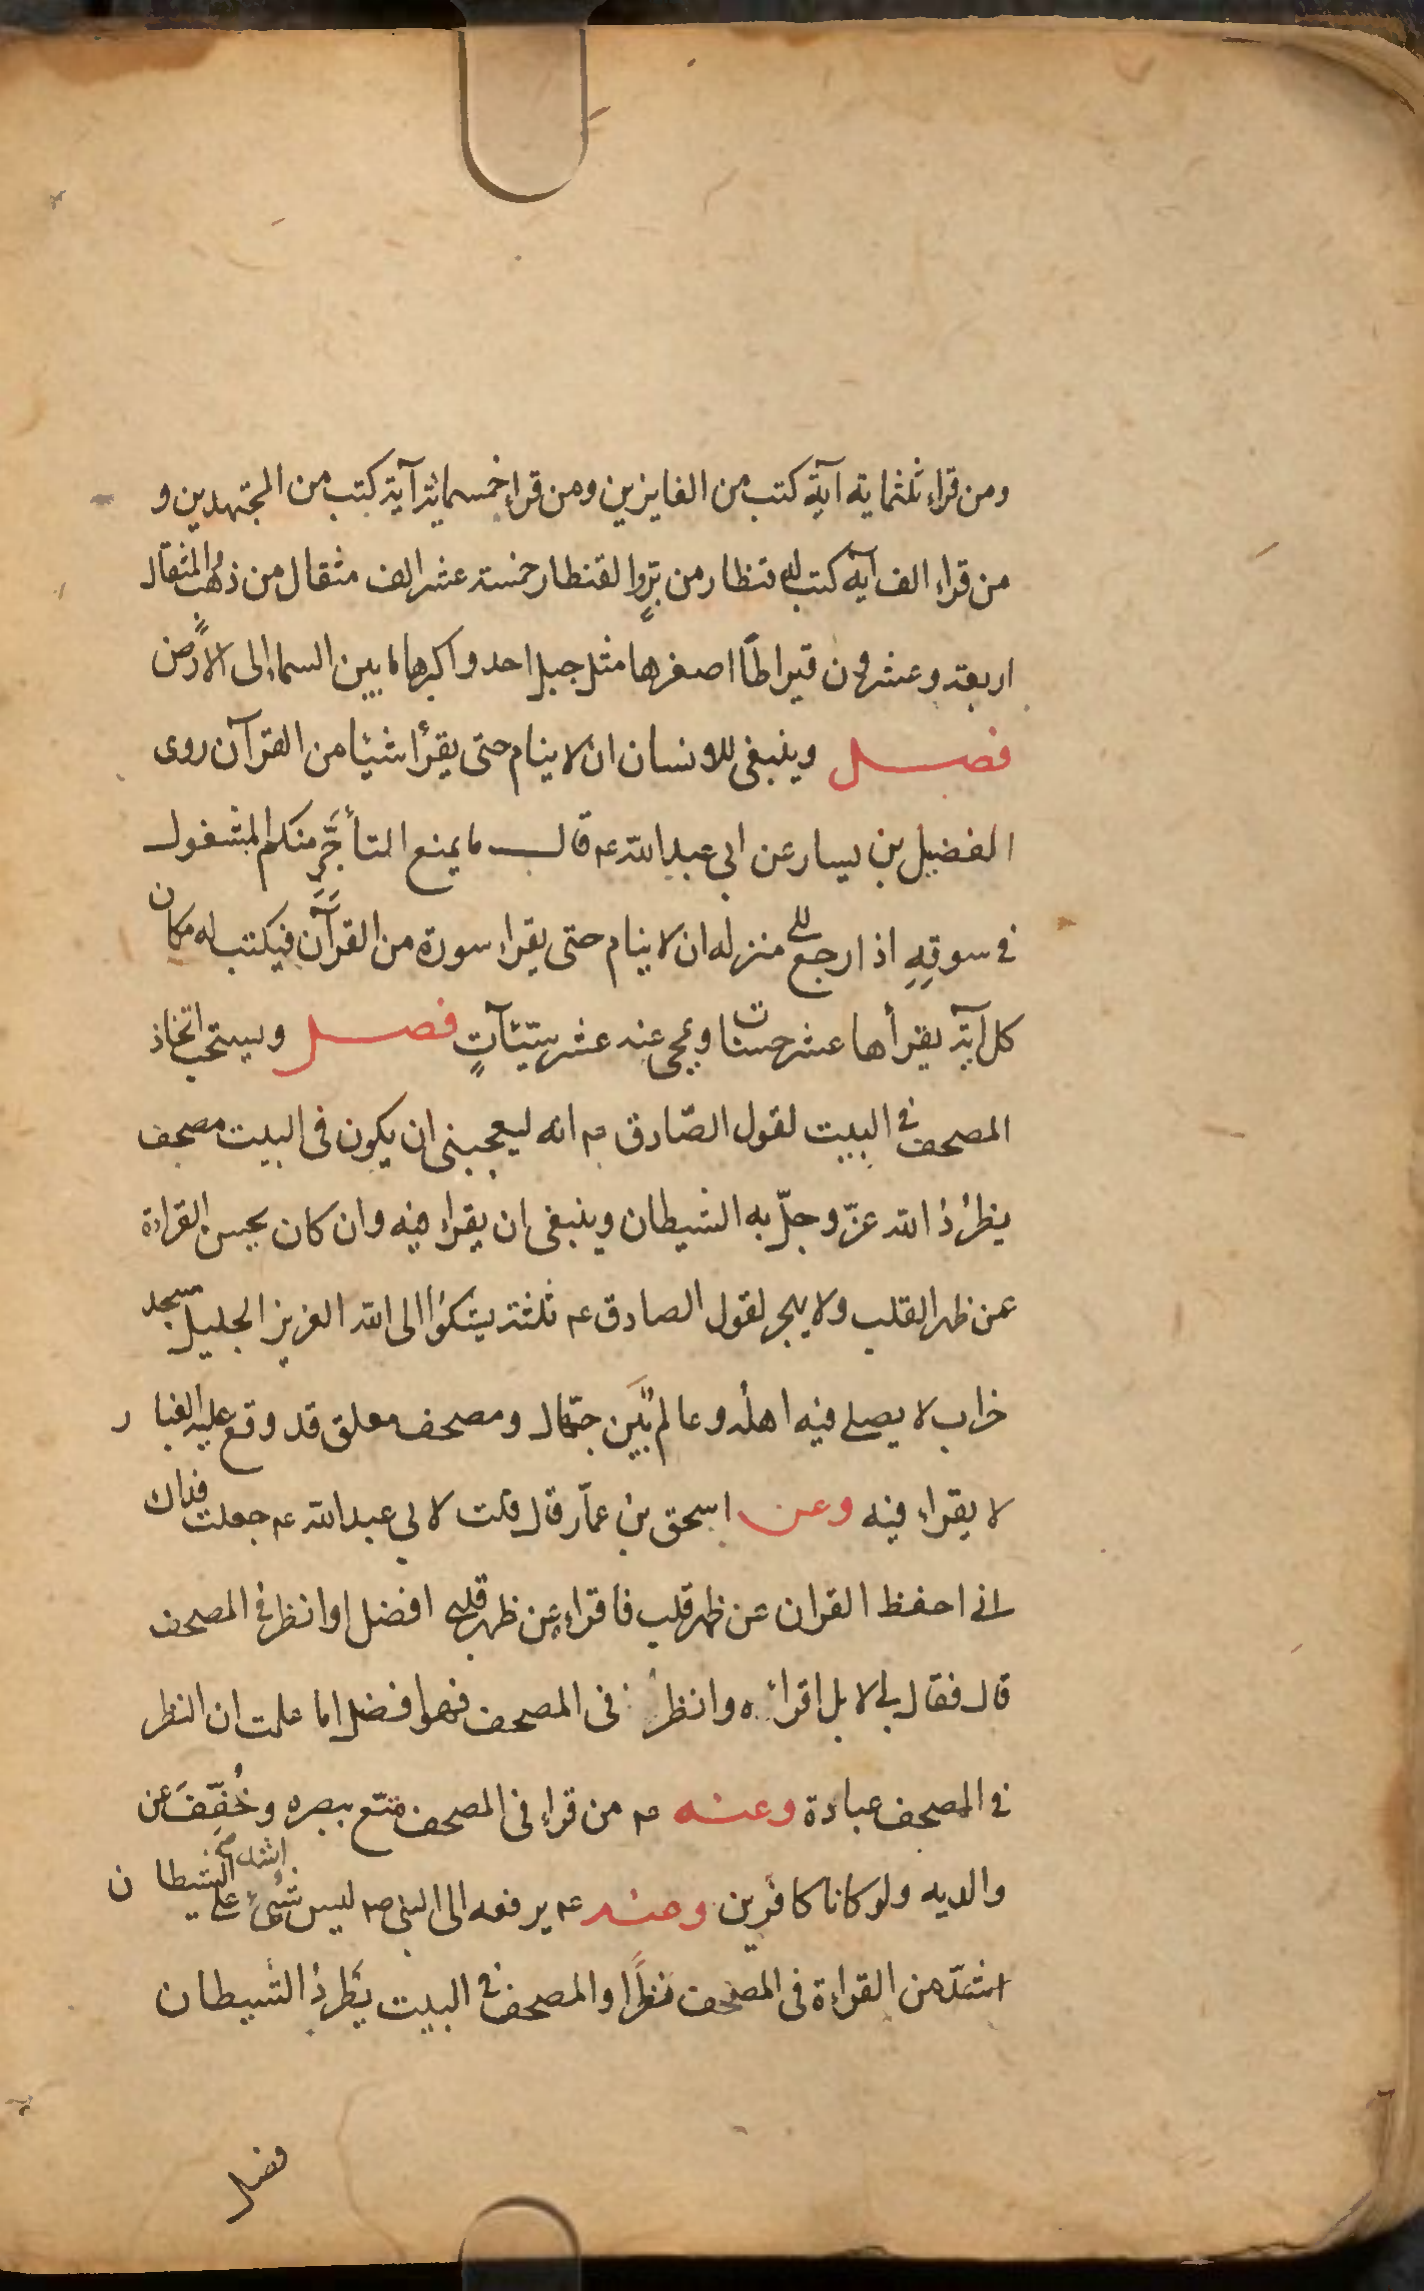 ومن قراء ثلثمایة آیة كتب من الفایزین ومن قراء خمسمائة آیة كتب من المجتهدین و
من قراء الف آیة كتب له قنطار من برّ والقنطار خمسة عشر الف مثقال من ذهب المثقال
اربعة وعشرون قیراطًا اصغرها مثل جبل احد واكبرها ما بین السماء الى الارض
فصل وینبغى للانسان ان لا ینام حتى یقرأ شیئا من القرآن روى
الفضیل بن یسار عن ابى عبد الله عم قال ما یمنع التأجر منكم المشغول
فى سوقه اذا رجع الى منزله ان لا ینام حتى یقراء سورة من القرآن فیكتب له مكان
كل آیة یقرأها عشر حسنات ویمحى عنه عشر سیّئآتٍ فصل ویستحب اتخاذ
المصحف فى البیت لقول الصّادق عم انه لیعجبنى ان یكون فى البیت مصحف
یطرُدُ الله عزّ وجلّ به الشیطان وینبغى ان یقراء فیه وان كان یحسن القراءة
عن ظهر القلب ولا یهجر لقول الصادق عم ثلثة یشكوا الى الله العزیز الجلیل مسجد
خراب لا یصلى فیه اهله وعالم بَین جهّال ومصحف معلق قد وقع علیه الغبار
لا یقراء فیه وعن اسحق بن عمّار قال قلت لابى عبد الله عم جعلت فداك
انى احفظ القران عن ظهر قلب فاقراء عن ظهر قلبى افضل او انظر فى المصحف
قال فقال لى لا بل اقرائه وانظر فى المصحف فهو افضل اما علمت ان النظر
فى المصحف عبادة وعنه عم من قراء فى المصحف متّع ببصره وخُفِّفَ عن
والدیه ولو كانا كافرین وعنه عم یرفعه الى النبى صم لیس شىء على الشیطان
اشدّ من القراءة فى المصحف نظرًا والمصحف فى البیت یَطردُ الشیطان
فصل